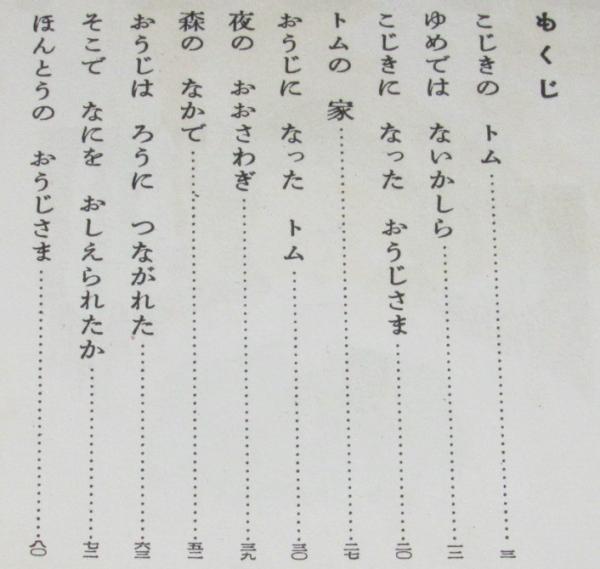 もくじ
こじきの トム……三
ゆめでは ないかしら……一二
こじきに なった おうじさま……二〇
トムの 家……二七
おうじに なった トム……三〇
夜の おおさわぎ……三九
森の なかで……五二
おうじは ろうに つながれた……六三
そこで なにを おしえられたか……七二
ほんとうの おうじさま……八〇